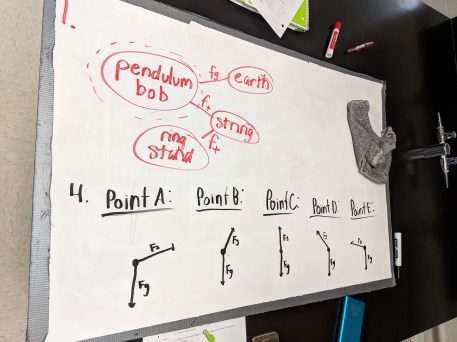 1.
pendulum
bob
fg
earth
ft
string
ft
ring
stand
4. Point A: Point B: Point C: Point D: Point E:
Fs Fs Fs Fs Fs
Fg Fg Fg Fg Fg